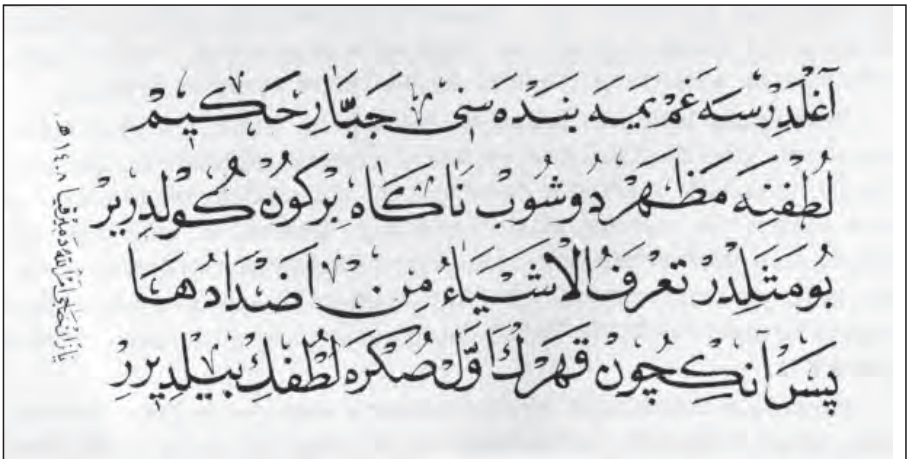 آغْلَدِرْسَه غَمْ يِمَه بَنْدَه سِنِى جَبَّارِ حَكِيمْ
لُطْفِنَه مَظْهَرْ دُوشُوبْ نَاكَاه بِرْكُونْ كُولْدِرِيرْ
بُو مَثَلْدِرْ تُعْرَفُ الْاَشْيَاءُ مِنْ اَضْدَادِهَا
پَسْ آنِكْچُونْ قَهْرِڭْ اَوَّلْ صُكْرَه لُطْفِڭْ بِيلْدِيرِرْ
١٤٠٨ هـ